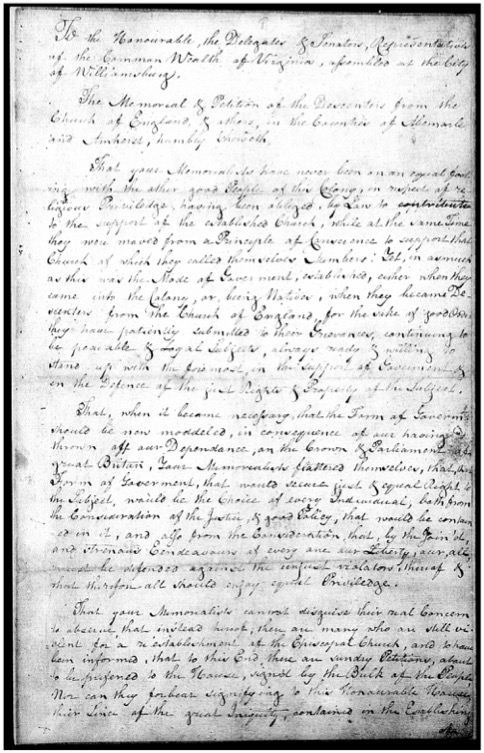 To the Honourable, the Delegates & Senators, Representatives
of the Common Wealth of Virginia, assembled at the City
of Williamsburg.
The Memorial & Petition of the Descenters from the
Church of England, & others, in the Counties of Albemarle
and Amherst, humbly Sheweth,
That your Memorialists have never been on an equal foot
ing with the other good People of this Colony, in respects of re
ligious Priviledge, having been obliged, by Law to contribute
to the support of the established Church, while at the same Time
they were moved from a Principle of Conscience to support that
Church of which they called themselves Members: Yet, in as much
as this was the Mode of Goverment, established, either when they
came into the Colony, or, being Natives, when they became De
scenters from the Church of England, for the sake of good Order
they have patiently submitted to their Grievances, continuing to
be peaceable & Loyal Subjects, always ready & willing to
stand up with the foremost, in the support of Goverment &
in the Defence of the just Rights & Property of the Subject.
That, when it became necessary, that the Form of Goverment
should be new moddeled, in consequence of our having
thrown off our Dependance, on the Crown & Parliament of
great Britan, Your Memorialists flattered themselves, that,
Form of Goverment, that would secure just & equal Right to
the Subject, would be the Choice of every Individual, both from
the Consideration of the Justice, & good Policy, that would be contain
ed in it, and also from the Consideration, that, by the Join'd,
and strenous Eendeavours of every one our Liberty, our all,
must be defended against the unjust violators thereof &
that therefore all should enjoy equal Priviledge.
That your Memorialists cannot disguise their real Concern
to observe that instead hereof, there are many who are still vi
olent for a re establishment of the Episcopal Church, and to have
been informed, that to this End, there are sundry Petitions, about
to be prefered to the House, signed by the Bulk of the People
Nor can they forbear signifying to this Honourable House
their Sense of the great Iniquity, contained in the Establishing